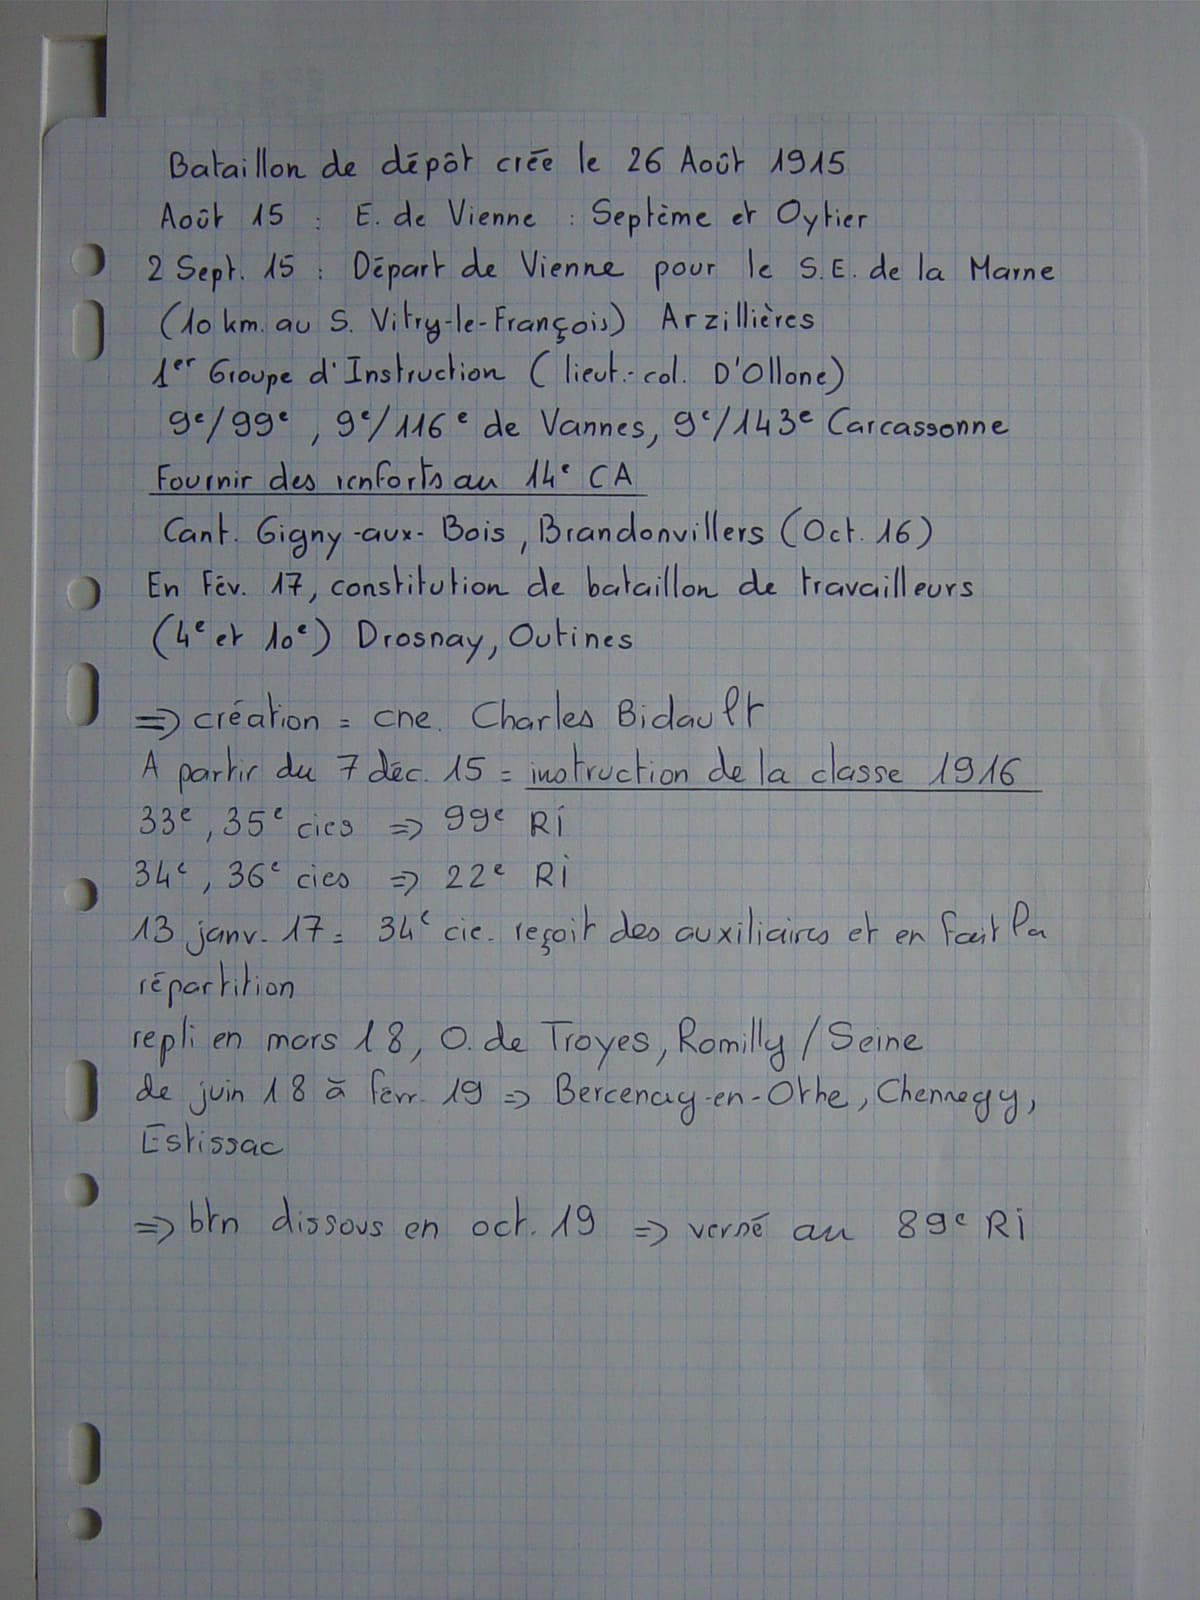 Bataillon de dépôt crée le 26 Août 1915
Août 15 : E. de Vienne : Septème et Oytier
2 Sept. 15 : Départ de Vienne pour le S.E. de la Marne
(10 km. au S. Vitry-le-François) Arzillières
1er Groupe d'Instruction (lieut.-col. D'Ollone)
9e/99e, 9e/116e de Vannes, 9e/143e Carcassonne
Fournir des renforts au 14e CA
Cant. Gigny-aux-Bois, Brandonvillers (Oct. 16)
En Fév. 17, constitution de bataillon de travailleurs
(4e et 10e) Drosnay, Outines
=> création = cne. Charles Bidault
A partir du 7 déc. 15 = instruction de la classe 1916
33e, 35e cies => 99e RI
34e, 36e cies => 22e RI
13 janv. 17 = 34e cie. reçoit des auxiliaires et en fait la
répartition
repli en mars 18, O. de Troyes, Romilly/Seine
de juin 18 à févr. 19 => Bercenay-en-Othe, Chennegy,
Estissac
=> btn dissous en oct. 19 => versé au 89e RI